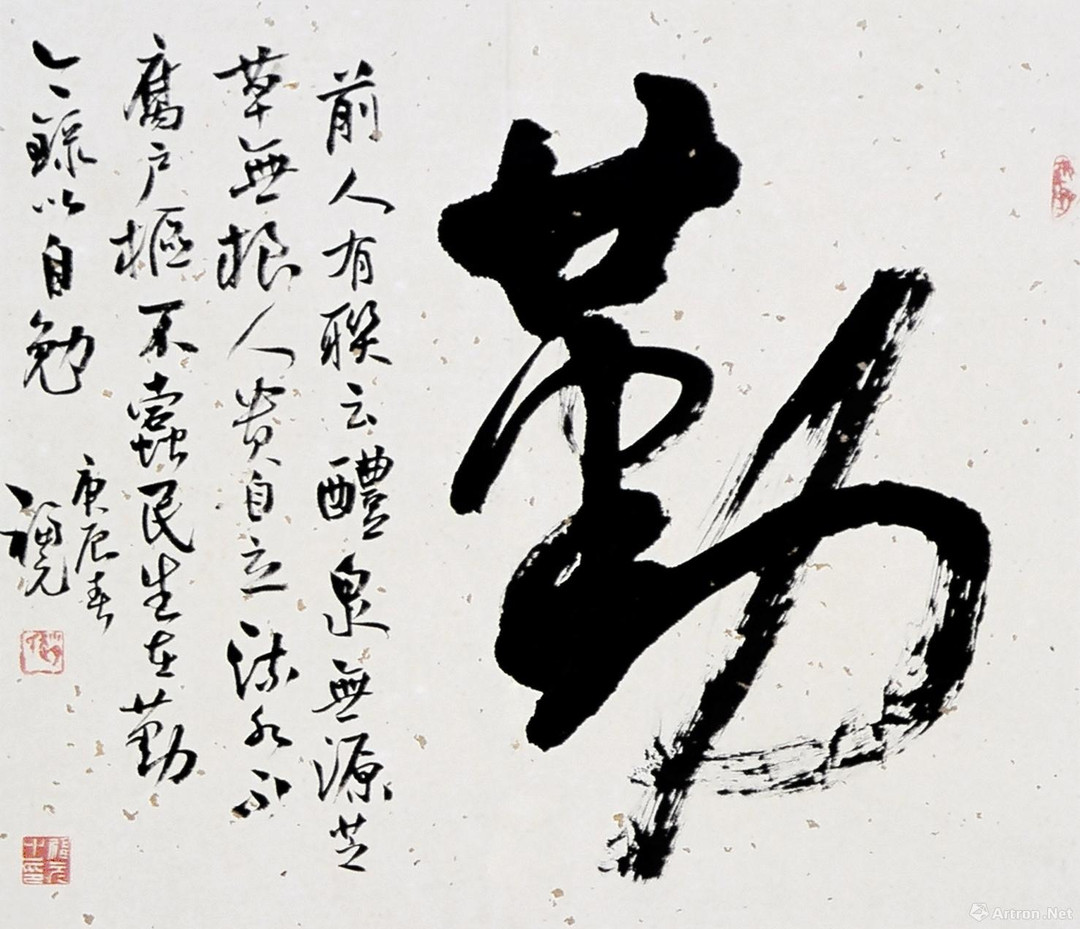 勤
前人有聯云醴泉無源芝
草無根人貴自立流水不
腐户樞不蠹民生在勤
今錄以自勉
庚辰春
福元
Artron.Net